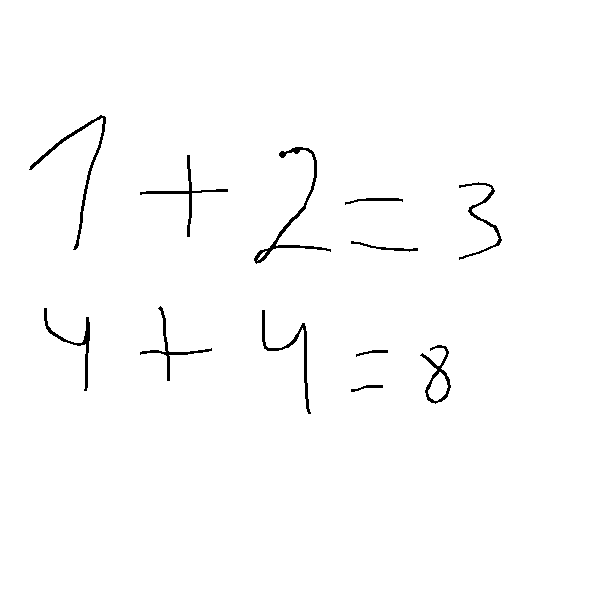 1 + 2 = 3
4 + 4 = 8